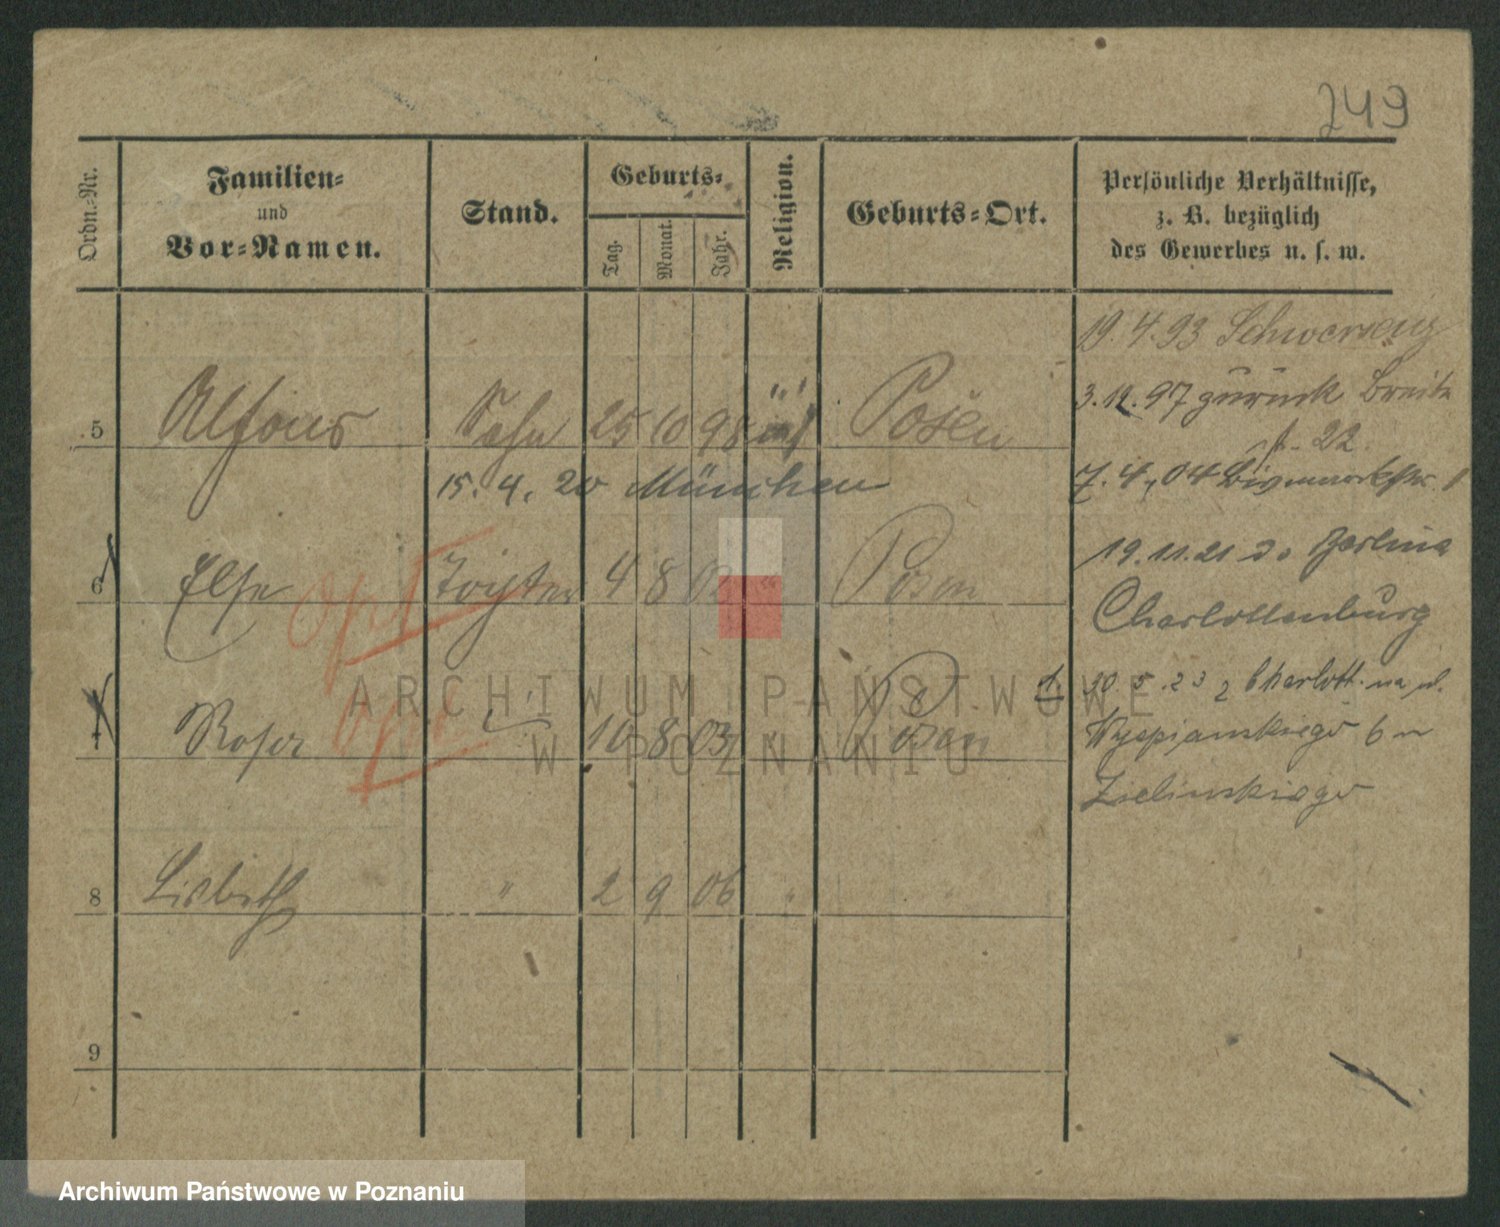 249
Ordn.-Nr.
Familien-
und
Vor-Namen.
Stand.
Geburts-
Tag.
Monat.
Jahr.
Religion.
Geburts-Ort.
Persönliche Verhältnisse,
z. B. bezüglich
des Gewerbes u. s. w.
19. 4. 93 Schwersenz
3. 12. 97 zurück Breite
str. 22.
5 Alfons Sohn 25 10 98 Posen
15. 4. 20 München
7. 4. 04 Bismarckstr. 1
19. 11. 21 do Berlina
6 Else Opt Tochter 4 8 02 " Posen
Charlottenburg
1. 30. 5. 23 z Charlott. na ul.
7 Rosa Opt " 10 8 03 " Posen
Wyspianskiego 6 m
Zielinskiego
8 Lisbeth " 2 9 06 "
9
ARCHIWUM PAŃSTWOWE
W POZNANIU
Archiwum Państwowe w Poznaniu